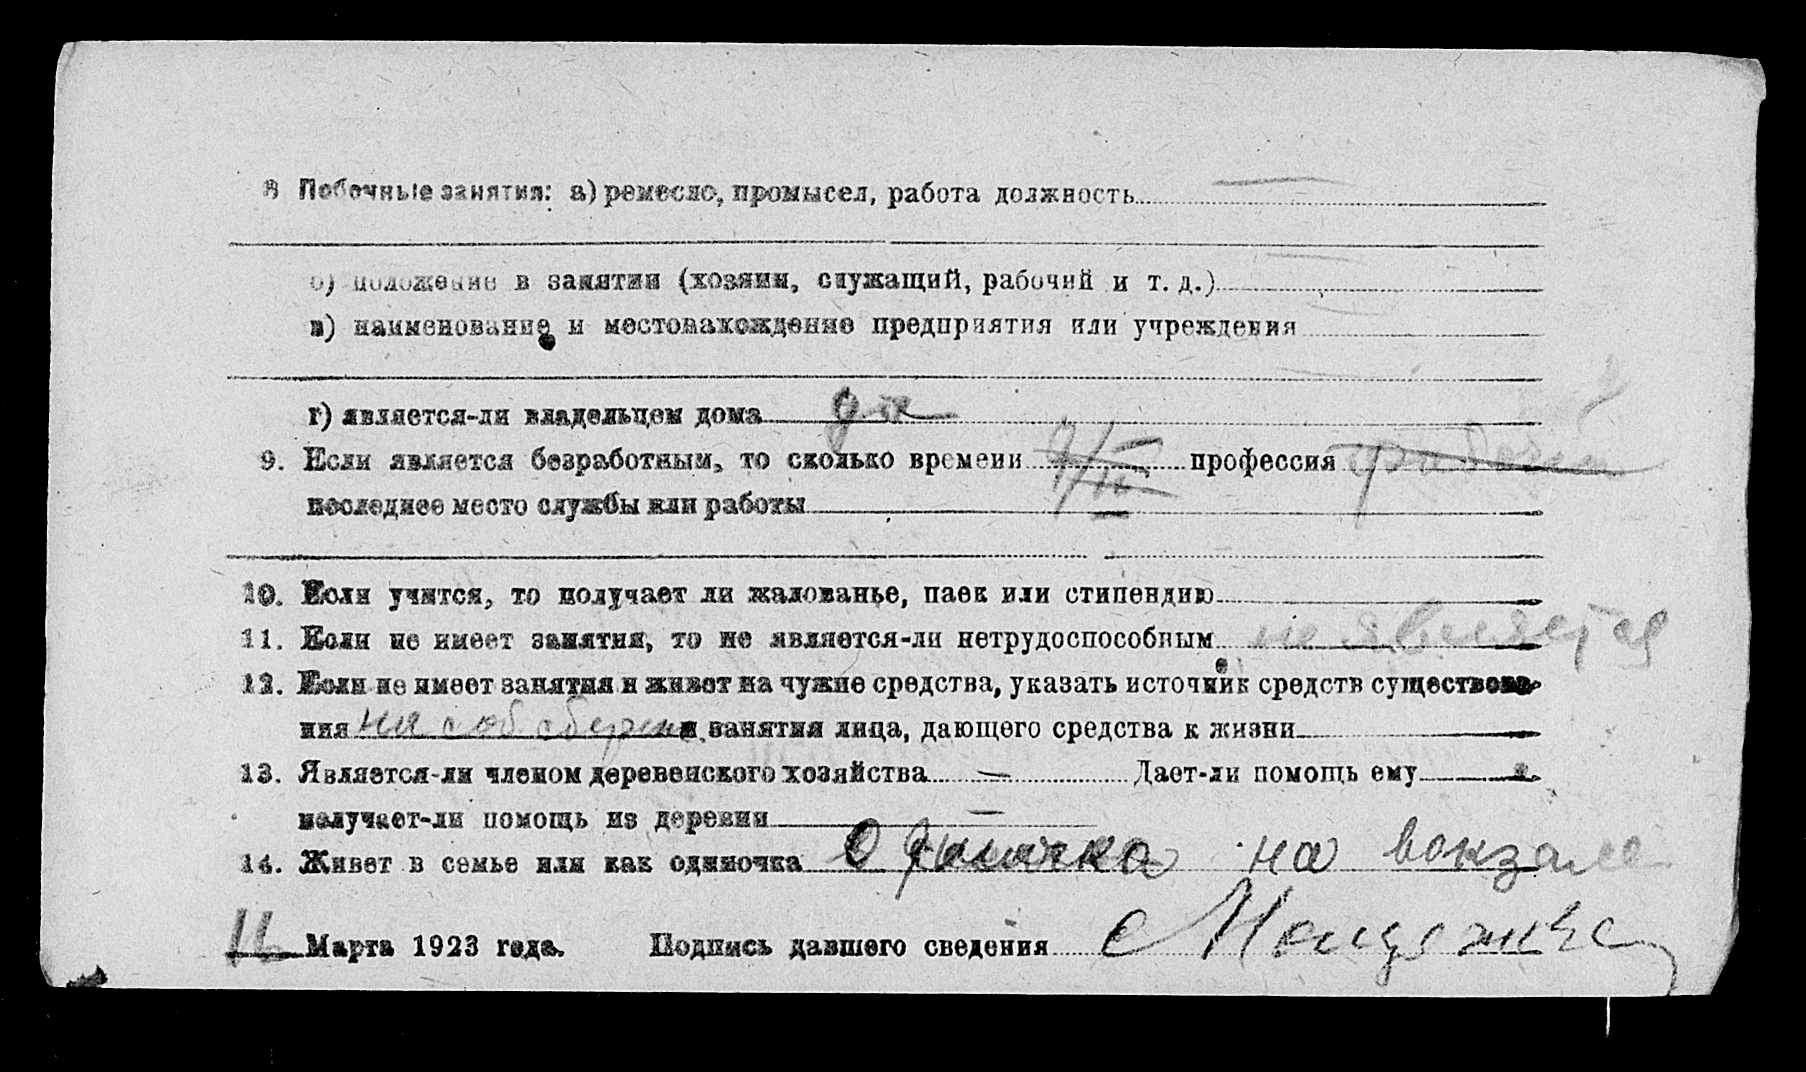 8 Побочные занятия: а) ремесло, промысел, работа должность —
б) положение в занятии (хозяин, служащий, рабочий и т. д.)
в) наименование и местонахождение предприятия или учреждения
г) является-ли владельцем дома да
9. Если является безработным, то сколько времени профессия
последнее место службы или работы
10. Если учится, то получает ли жалованье, паек или стипендию
11. Если не имеет занятия, то не является-ли нетрудоспособным не является
12. Если не имеет занятия и живет на чужие средства, указать источник средств существова-
ния на соб сбереж и занятия лица, дающего средства к жизни
13. Является-ли членом деревенского хозяйства — Дает-ли помощь ему
получает-ли помощь из деревни —
14. Живет в семье или как одиночка Одиночка на вокзале
Марта 1923 года. Подпись давшего сведения